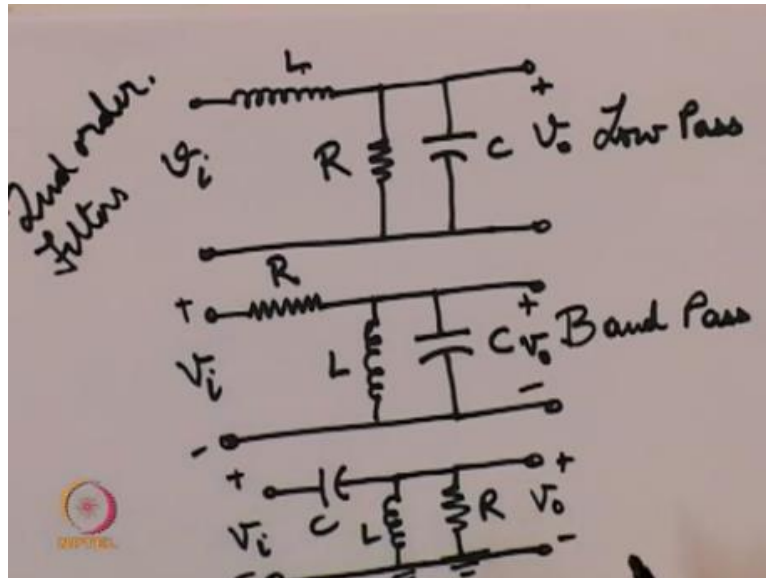 2nd order.
Filters
L
R
C
+
vi
vo
Low Pass
R
+
+
Vi
L
C
vo
Band Pass
-
-
+
+
C
Vi
L
R
Vo
-
NPTEL